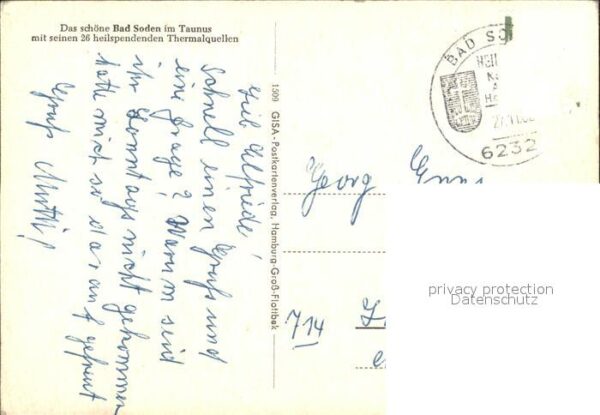 Das schöne Bad Soden im Taunus
mit seinen 26 heilspendenden Thermalquellen
Lieb Elfriede!
Schnell einen Gruß und
eine Frage? Warum seid
ihr Sonntags nicht gekommen
hatte mich so darauf gefreut
Gruß Mutti!
1509 GISA-Postkartenverlag, Hamburg-Groß-Flottbek
BAD SO
HEIL
6232
Georg
714
privacy protection
Datenschutz